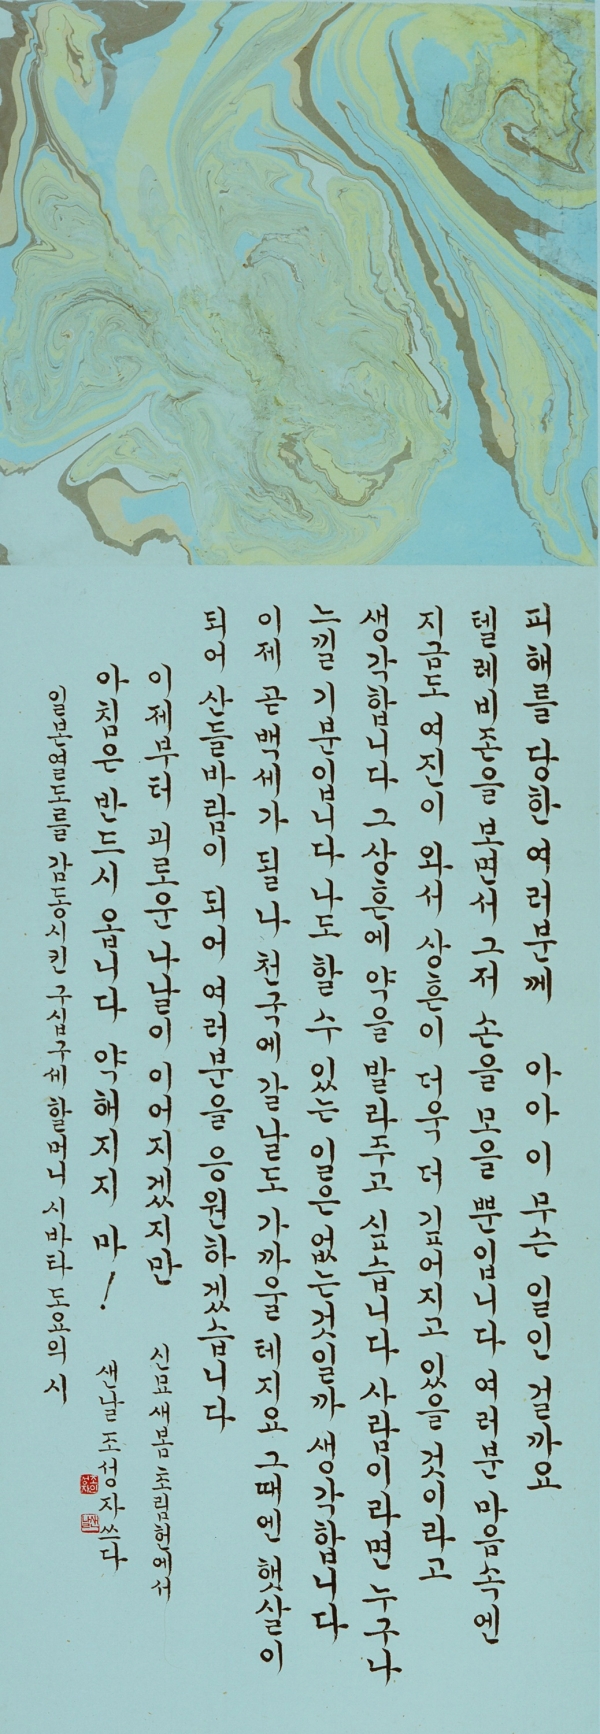 피해를 당한 여러분께 아아 이 무슨 일인 걸까요
텔레비존을 보면서 그저 손을 모을 뿐입니다 여러분 마음속엔
지금도 여진이 와서 상흔이 더욱 더 깊어지고 있을 것이라고
생각합니다 그 상흔에 약을 발라주고 싶습니다 사람이라면 누구나
느낄 기분입니다 나도 할 수 있는 일은 없는 것일까 생각합니다
이제 곧 백세가 될 나 천국에 갈 날도 가까울 테지요 그때엔 햇살이
되어 산들바람이 되어 여러분을 응원하겠습니다
이제부터 괴로운 나날이 이어지겠지만
아침은 반드시 옵니다 약해지지 마!
일본열도를 감동시킨 구십구세 할머니 시바타 도요의 시
신묘 새봄 초림헌에서
샌날 조성자 쓰다